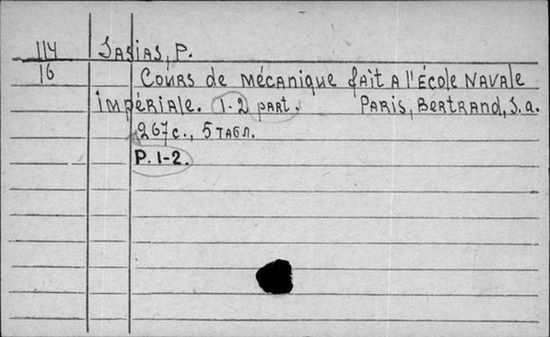 114 Jasias, P.
16 Cours de mécanique fait a l'École navale
impériale. 1-2 part. Paris, Bertrand, s.a.
267 c., 5 табл.
P. 1-2.